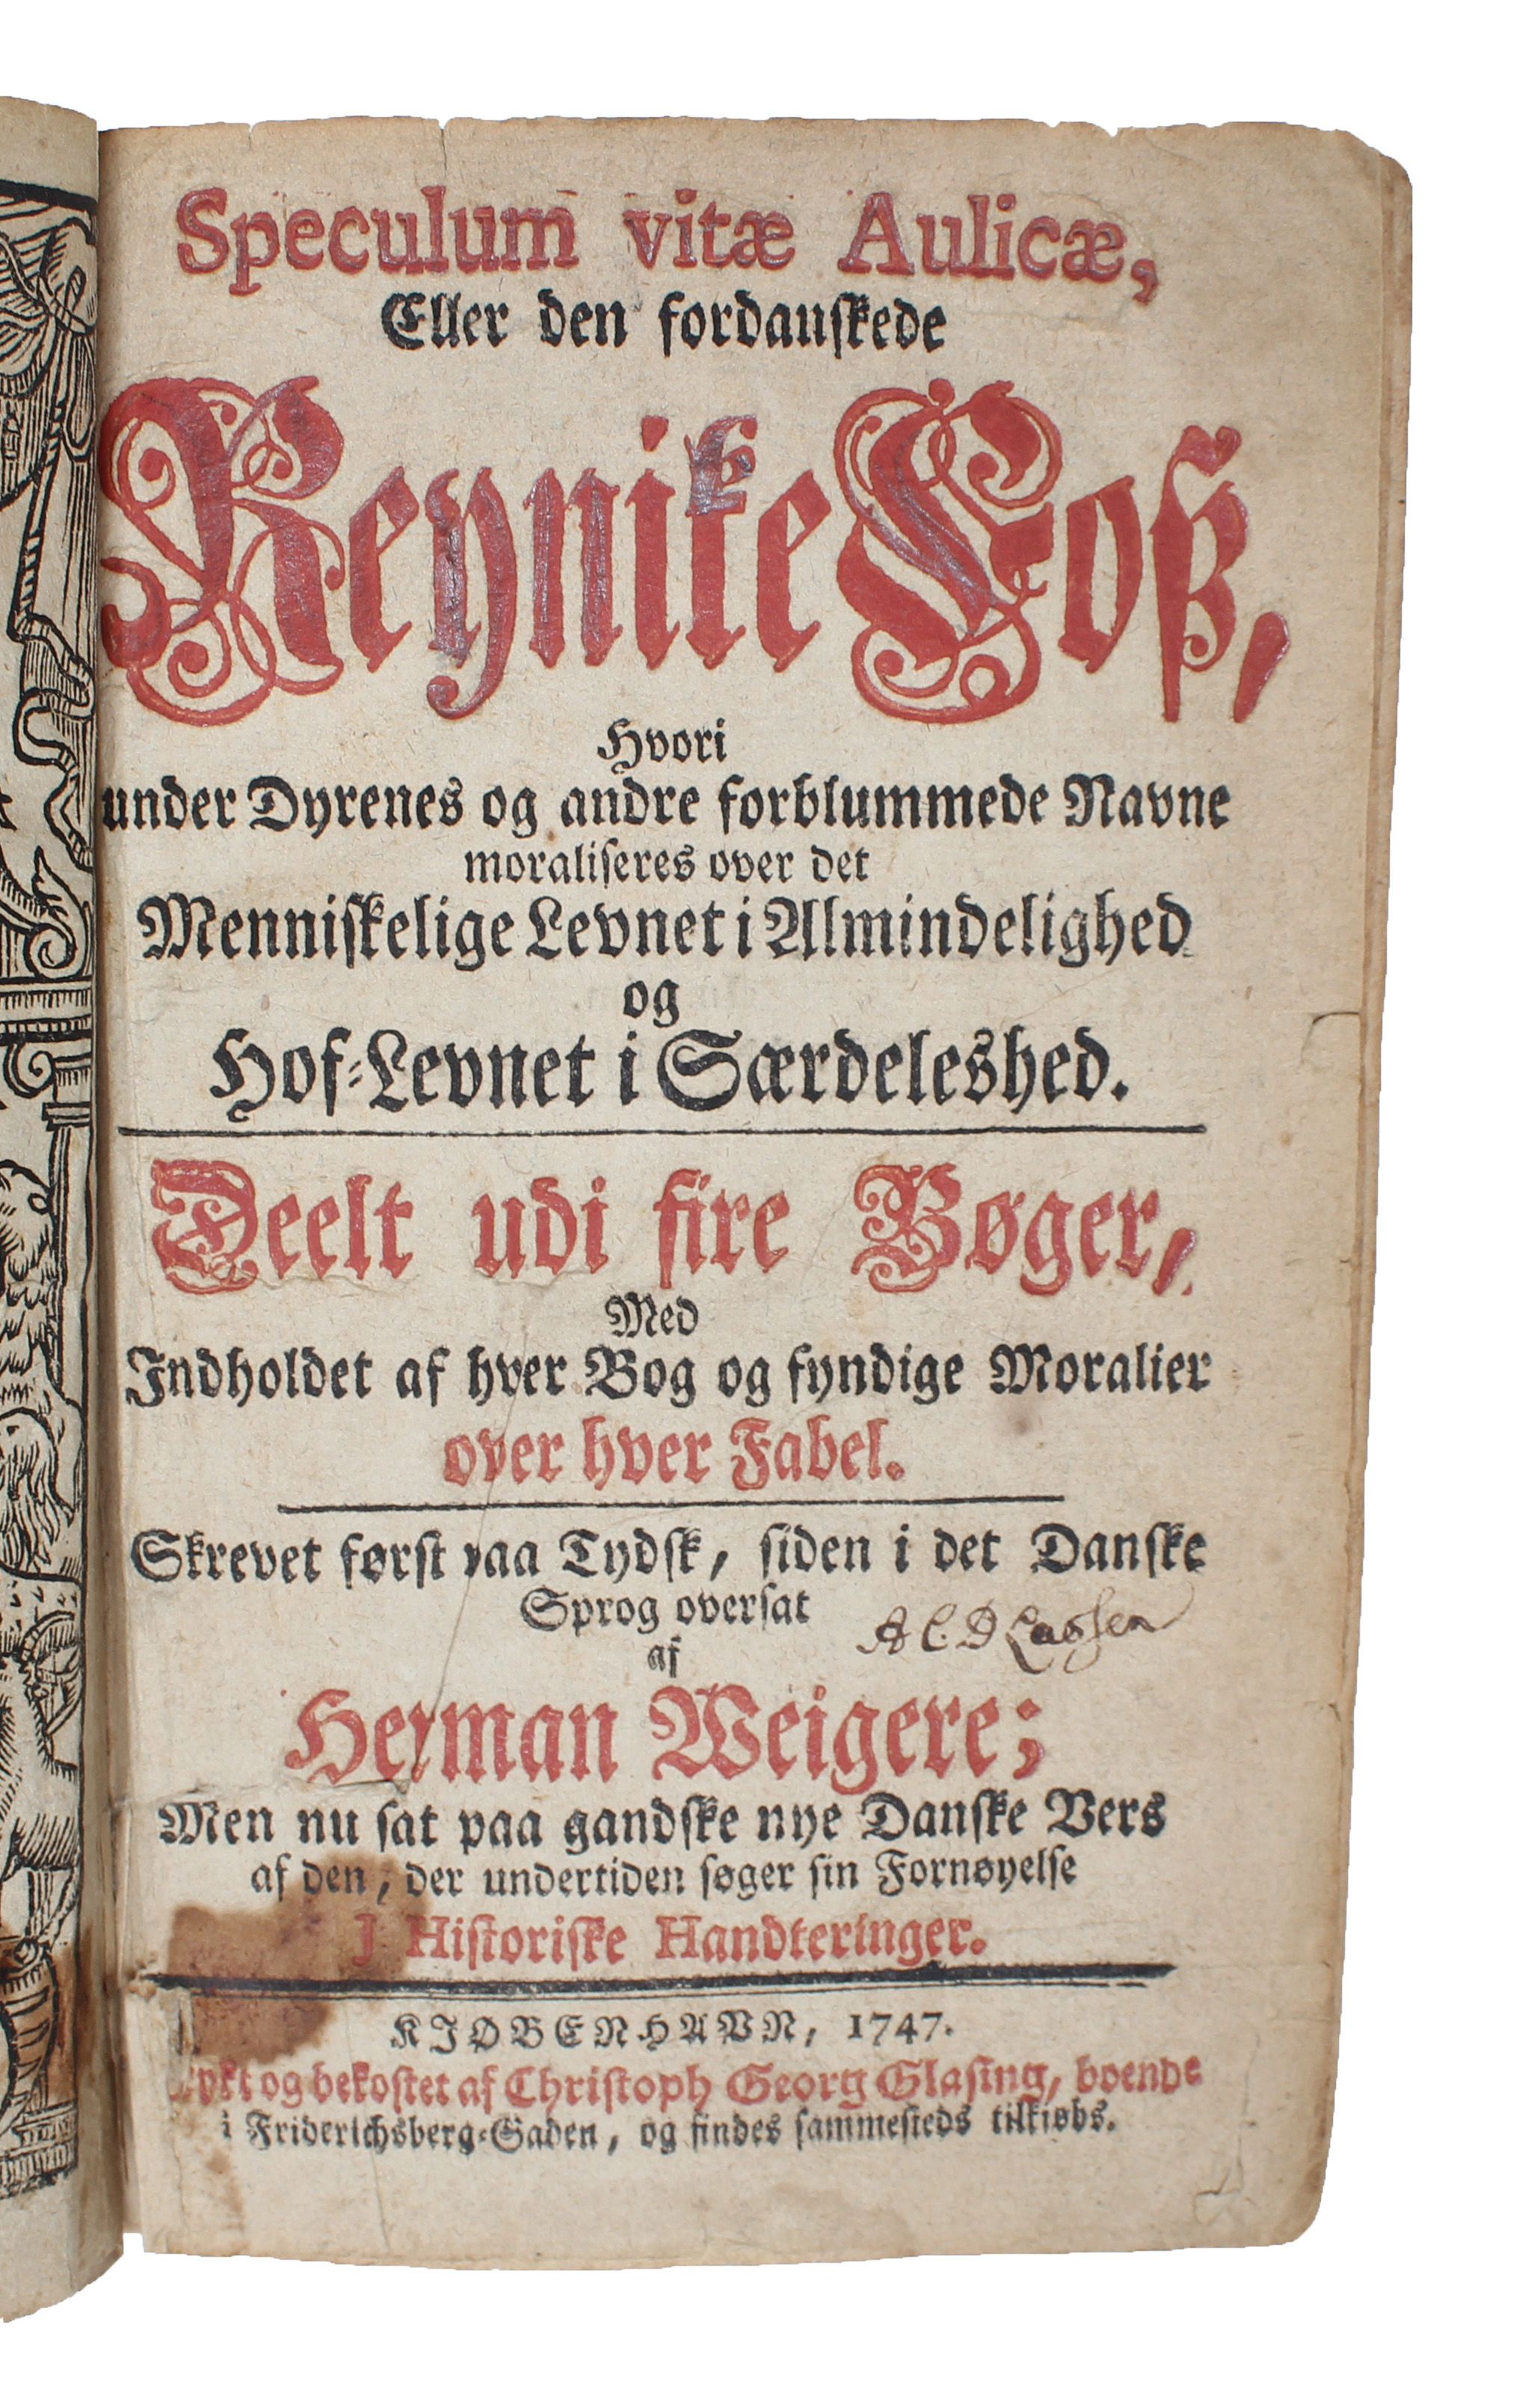 Speculum vitæ Aulicæ,
Eller den fordanskede
Reynike Foß,
Hvori
under Dyrenes og andre forblummede Navne
moraliseres over det
Menniskelige Levnet i Almindelighed
og
Hof-Levnet i Særdeleshed.
Deelt udi fire Bøger,
Med
Indholdet af hver Bog og fyndige Moralier
over hver Fabel.
Skrevet først paa Tydsk, siden i det Danske
Sprog oversat
A C. D Lassen
af
Herman Weigere;
Men nu sat paa gandske nye Danske Vers
af den, der undertiden søger sin Fornøyelse
I Historiske Handteringer.
KIØBENHAVN, 1747.
og bekostet af Christoph Georg Glasing, boende
i Friderichsberg-Gaden, og findes sammesteds tilkiøbs.